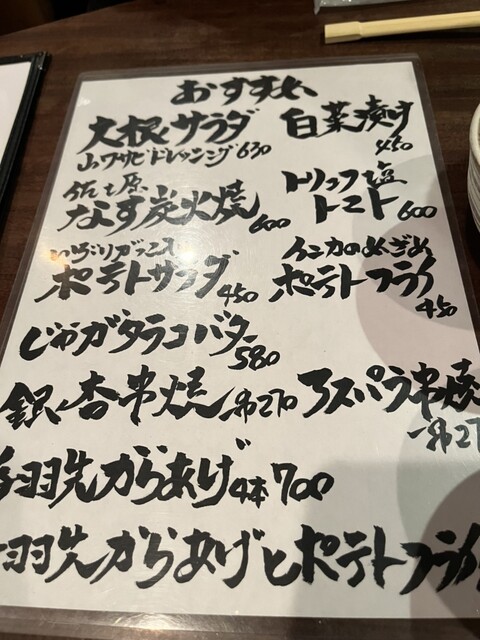 おすすめ
大根サラダ
山ワサビドレッシング 630
白菜漬け
450
佐土原
なす炭火焼 600
トリュフ塩
トマト 600
いぶりガッコ入
ポテトサラダ 450
インカのめざめ
ポテトフライ
450
じゃがタラコバター
580
銀杏串焼 一串270
アスパラ串焼
一串27
手羽先からあげ 4本 700
羽先からあげとポテトフライ